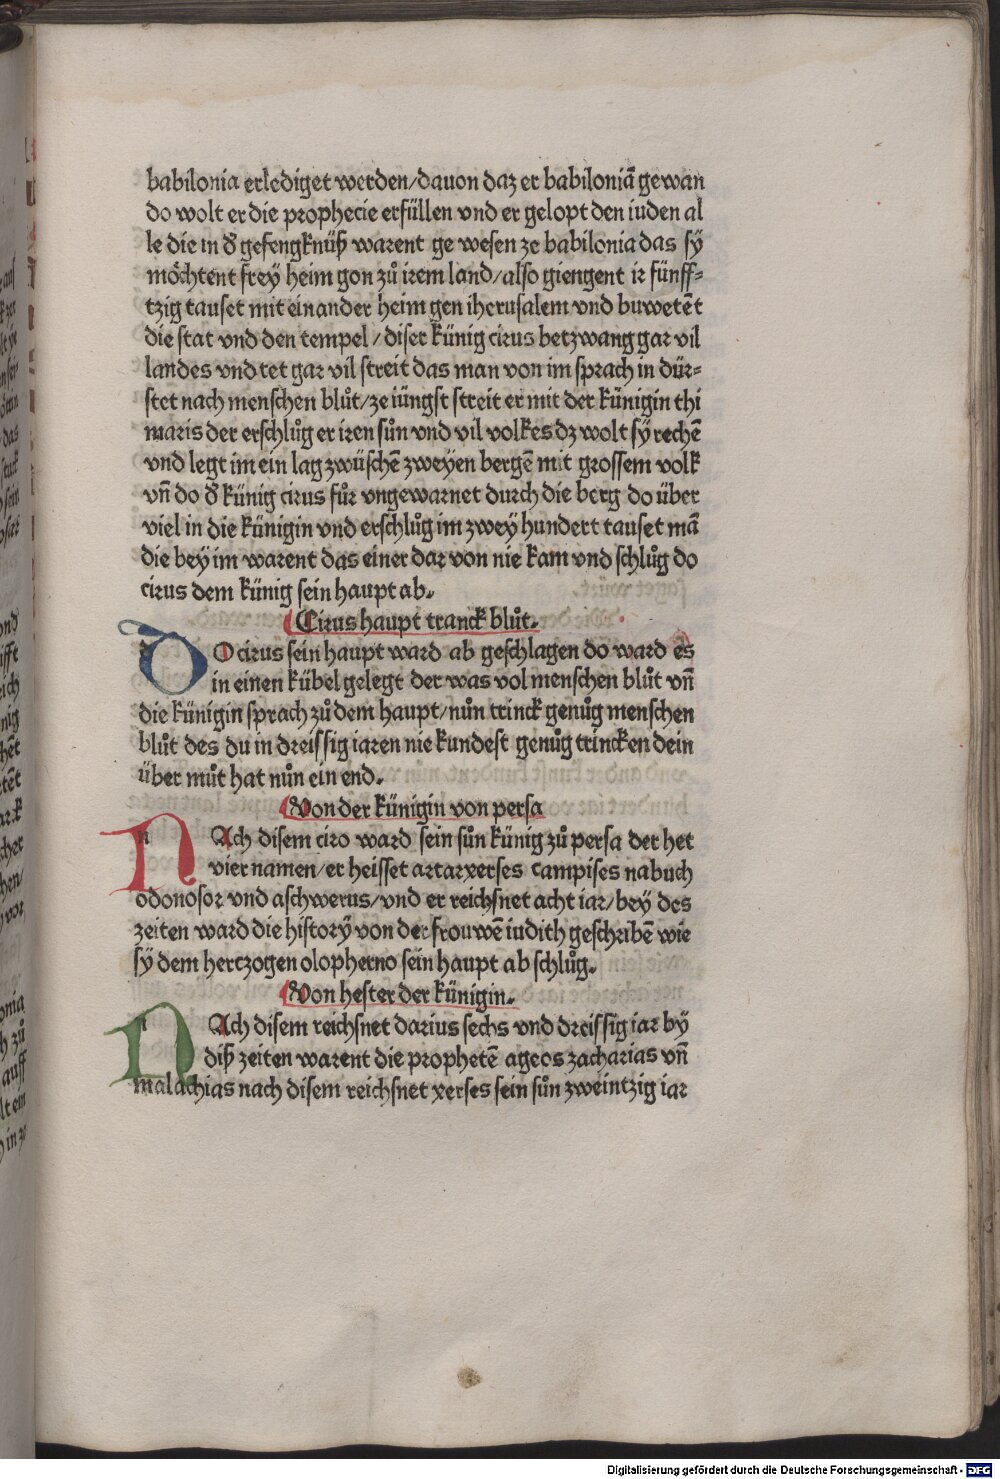 babilonia erlediget werden/dauon daz er babiloniā gewan
do wolt er die prophecie erfüllen vnd er gelopt den iuden al
le die in d̕ gefengknüß warent ge wesen ze babilonia das sy
möchtent frey heim gon zů irem land/also giengent ir fünff⸗
tzig tauset mit einander heim gen iherusalem vnd buwetēt
die stat vnd den tempel/diser künig cirus betzwang gar vil
landes vnd tet gar vil streit das man von im sprach in dür⸗
stet nach menschen blůt/ze iüngst streit er mit der künigin thi
maris der erschlůg er iren sůn vnd vil volkes dz wolt sy rechē
vnd legt im ein lag zwüschē zweyen bergē mit grossem volk
vn̄ do d̕ künig cirus fůr vngewarnet durch die berg do über
viel in die künigin vnd erschlůg im zwey hundert tauset mā
die bey im warent das einer dar von nie kam vnd schlůg do
cirus dem künig sein haupt ab.
Cirus haupt tranck blůt.
DO cirus sein haupt ward ab geschlagen do ward es
in einen kübel gelegt der was vol menschen blůt vn̄
die künigin sprach zů dem haupt/nůn trinck genůg menschen
blůt des du in dreissig iaren nie kundest genůg trincken dein
über můt hat nůn ein end.
Von der künigin von persa
NAch disem ciro ward sein sůn künig zů persa der het
vier namen/er heisset artarxerses campises nabuch
odonosor vnd aschwerus/vnd er reichsnet acht iar/bey des
zeiten ward die history von der frouwē iudith geschribē wie
sy dem hertzogen olopherno sein haupt ab schlůg.
Von hester der künigin.
NAch disem reichsnet darius sechs vnd dreissig iar by
diß zeiten warent die prophetē ageos zacharias vn̄
malachias nach disem reichsnet xerses sein sůn zweintzig iar
Digitalisierung gefördert durch die Deutsche Forschungsgemeinschaft - DFG